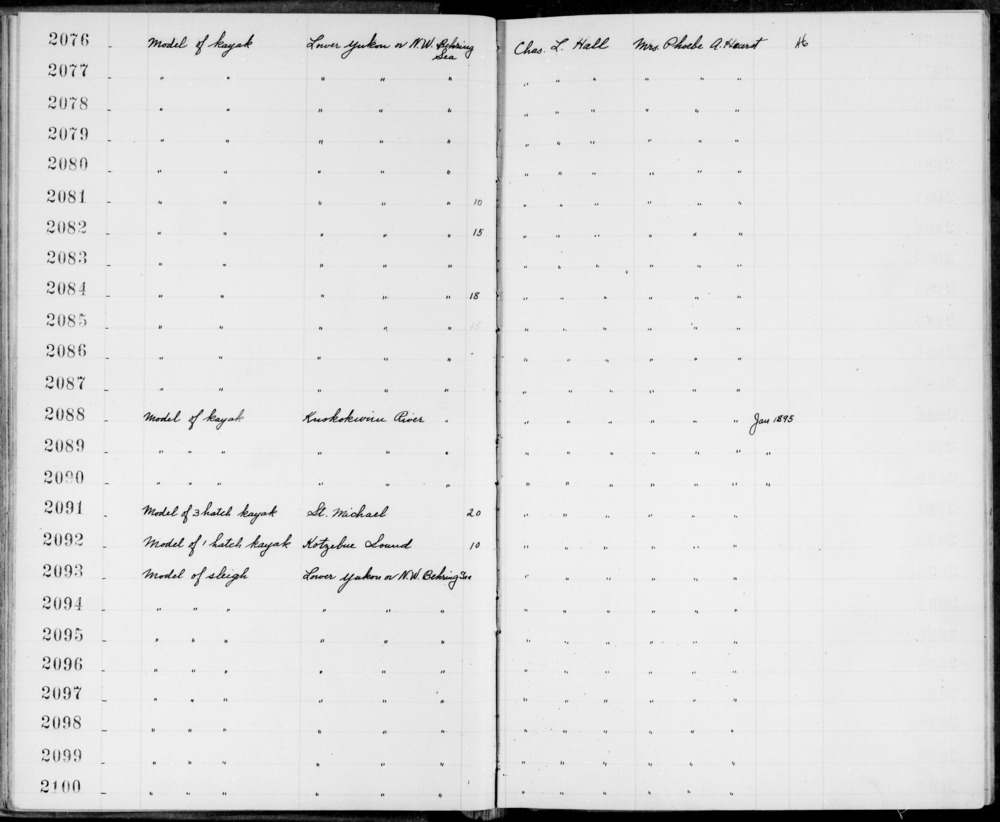 2076 Model of kayak Lower Yukon or N.W. Behring Sea Chas. L. Hall Mrs. Phoebe A. Hearst
2077 " " " " " " " " " " "
2078 " " " " " " " " " " "
2079 " " " " " " " " " " "
2080 " " " " " " " " " " "
2081 " " " " " 10 " " " " " "
2082 " " " " " 15 " " " " " "
2083 " " " " " " " " " " "
2084 " " " " " 18 " " " " " "
2085 " " " " " 15 " " " " " "
2086 " " " " " " " " " " "
2087 " " " " " " " " " " "
2088 Model of kayak River " " " " " " " Jan 1895
2089 " " " " " " " " " " " " " "
2090 " " " " " " " " " " " " " "
2091 Model of 3 hatch kayak St. Michael 20 " " " " " "
2092 Model of 1 hatch kayak Kotzebue Sound 10 " " " " " "
2093 Model of sleigh Lower Yukon or N.W. Behring Sea " " " " " "
2094 " " " " " " " " " " " "
2095 " " " " " " " " " " " "
2096 " " " " " " " " " " " "
2097 " " " " " " " " " " " "
2098 " " " " " " " " " " " "
2099 " " " " " " " " " " " "
2100 " " " " " " " " " " " "